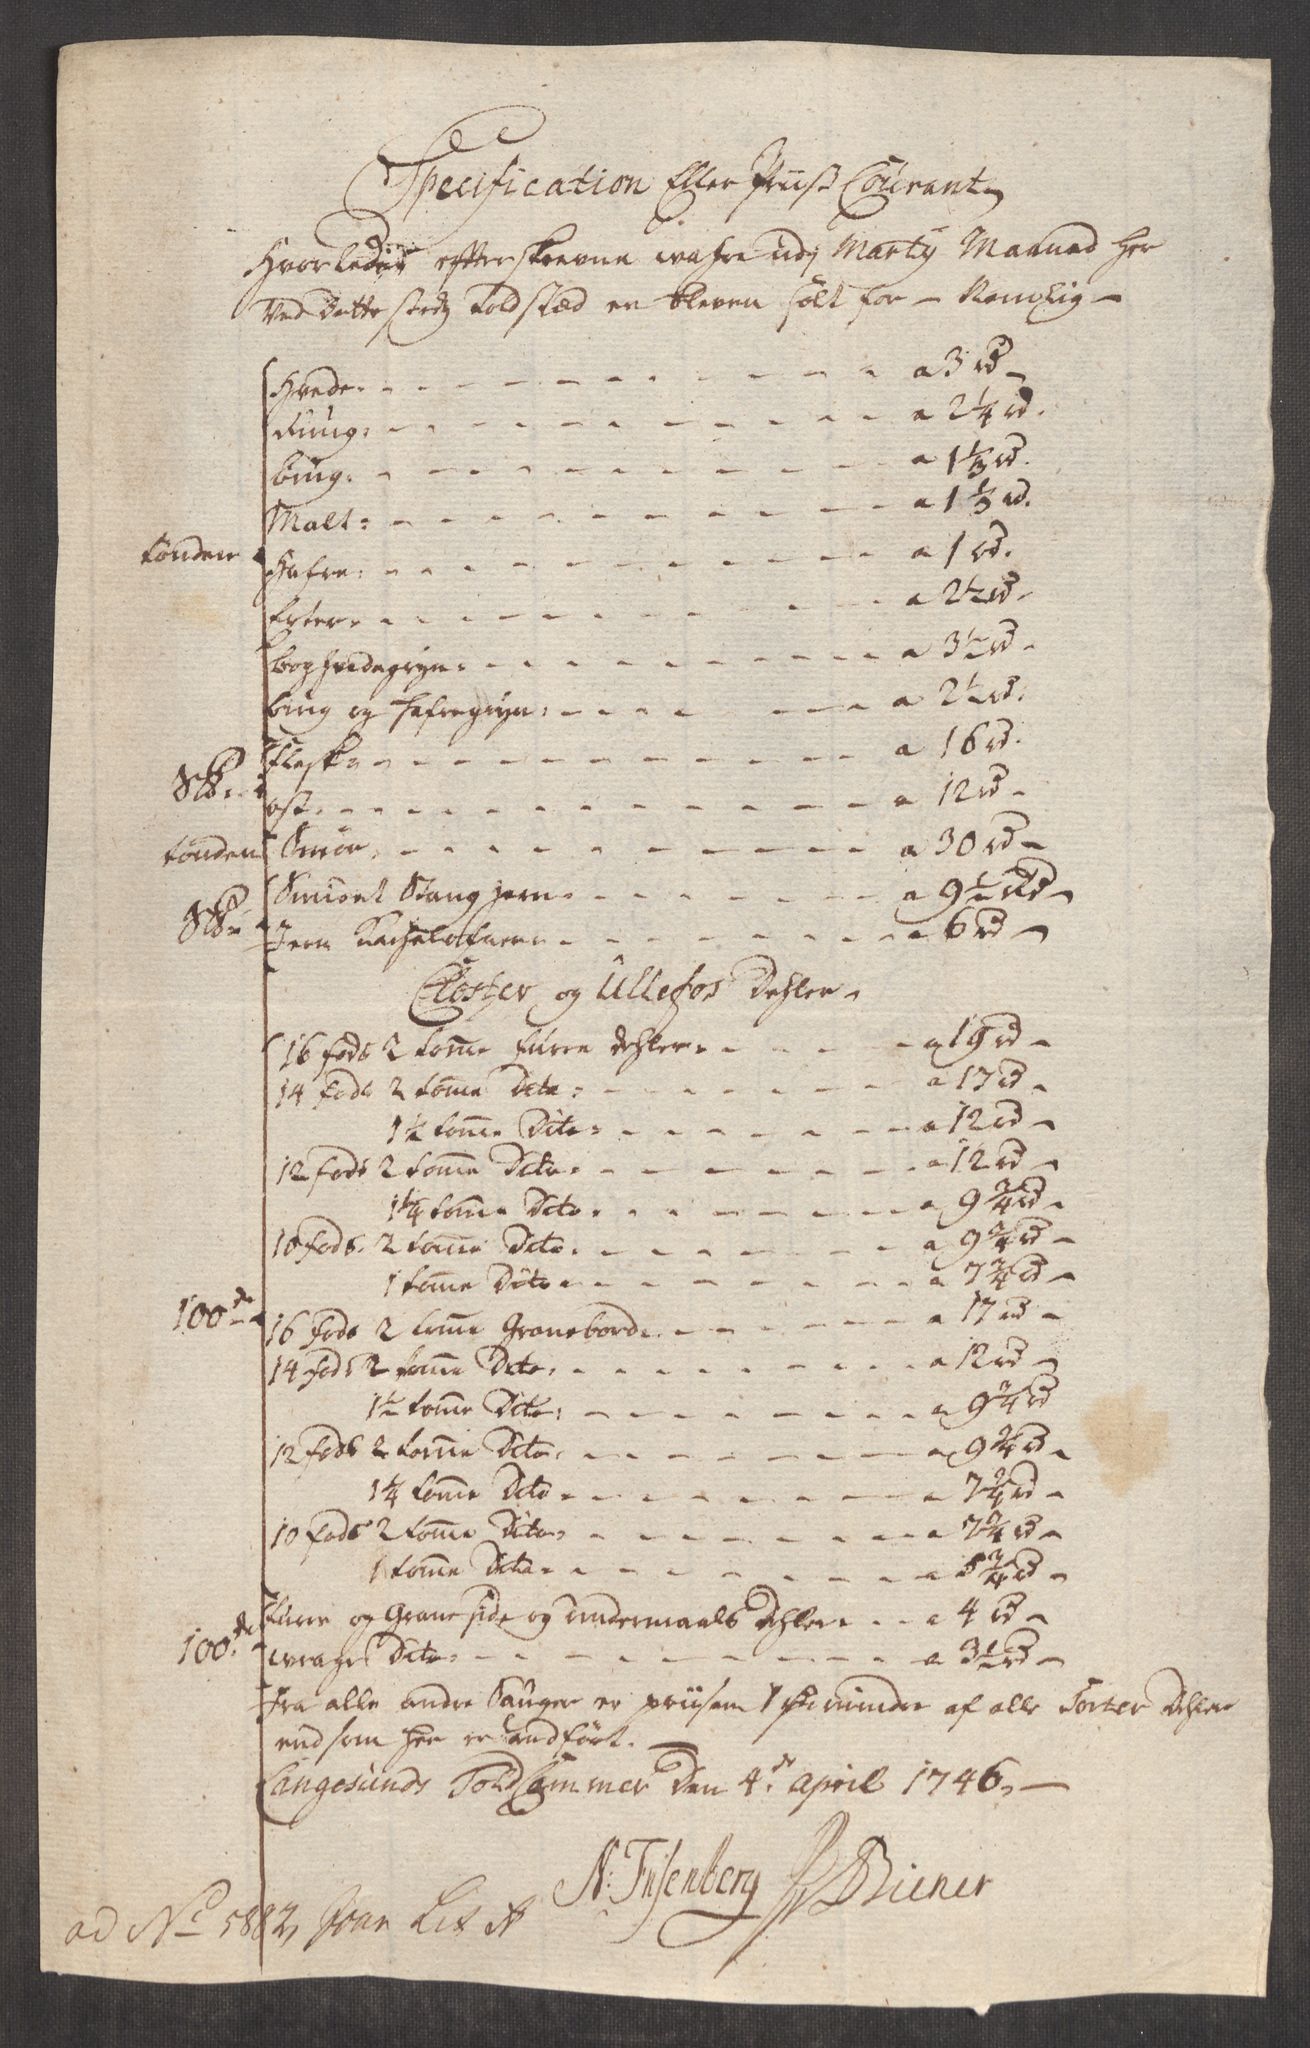 Specification Eller Priiß Courant
Hvorledis effterskrevne wahre udj Marty Maaned her
Ved dette steds toldstæd er bleven sölt for - Nemlig -
Hvede - a 3 rd -
Rüug - a 2 1/4 rd.
büug - a 1 1/3 rd.
Malt - a 1 1/3 rd.
tönden Hafre - a 1 rd.
Erter - a 2 1/2 rd.
boghvedegryn - a 3 1/2 rd
büug og Hafregryn - a 2 1/2 rd.
Flesk - a 16 rd.
S℔ ost - a 12 rd -
tönden Smör - a 30 rd -
Smidet Stang jern - a 9 1/2 rd -
S℔ Jern Kachelofner - a 6 rd -
Closter og Ullefos Dehler -
16 fods 2 tomme fürre dehler - a 19 rd -
14 fods 2 tomme Dito - a 17 rd -
1 1/2 tomme Dito - a 12 rd -
12 fods 2 tomme Dito - a 12 rd -
1 1/4 tomme Dito - a 9 3/4 rd -
10 fods 2 tomme Dito - a 9 3/4 rd -
1 tomme Dito - a 7 3/4 rd -
100de 16 fods 2 tomme Granebord - a 17 rd -
14 fods 2 tomme Dito - a 12 rd -
1 1/2 tomme Dito - a 9 3/4 rd
12 fods 2 tomme Dito - a 9 3/4 rd -
1 1/4 tomme Dito - a 7 3/4 rd -
10 fods 2 tomme Dito - a 7 3/4 rd -
1 tomme Dito - a 5 3/4 rd -
fürre og Grane side og undermaals Dehler - a 4 rd -
100de wrager Dito - a 3 1/2 rd -
Fra alle andre Sauger er priisen 1 rd minder af alle Sorter Dehler
end som her er andfört. -
Langesunds Told Cammer Den 4de april 1746 -
N: Frisenberg Biener
ad No 5882, Joan Lit A